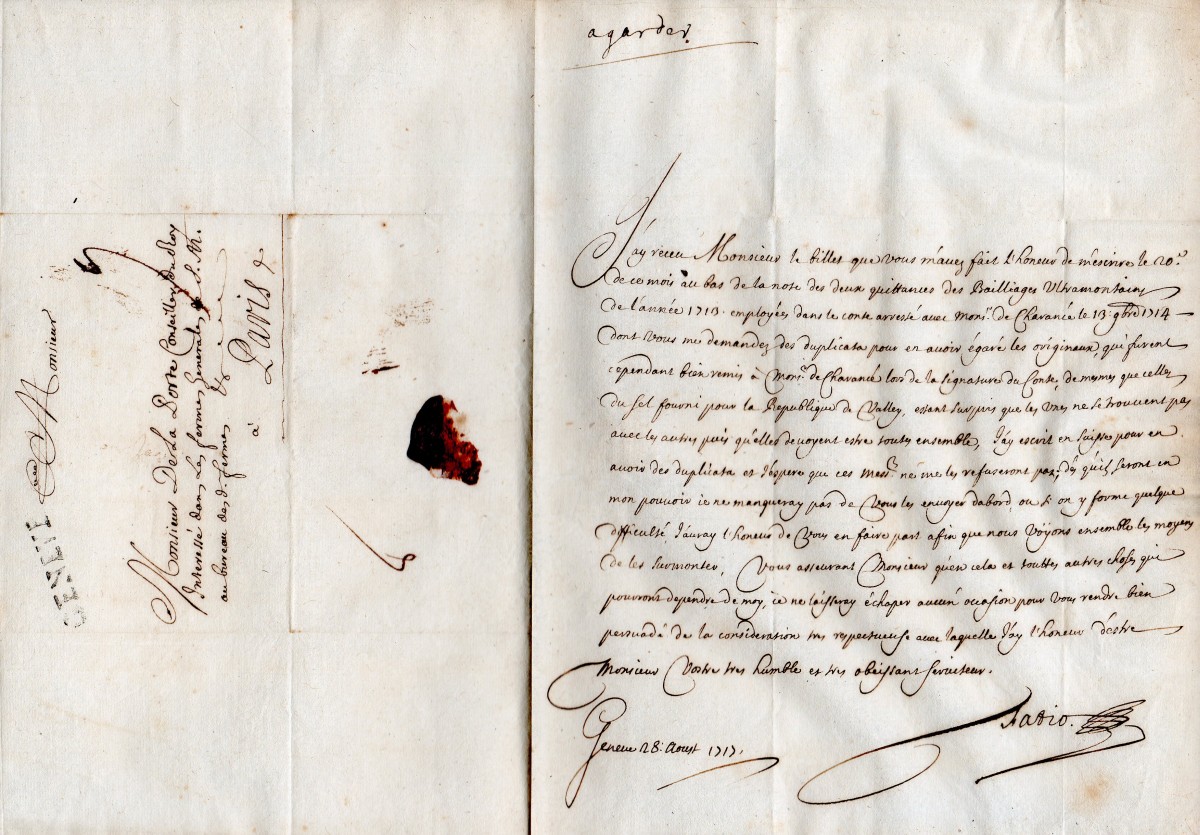 agarder.
J'ay receu Monsieur le billet que vous m'avez fait l'honeur de m'escrire le 20e.
de ce mois au bas de la note des deux quittances des Bailliages Ultramontains
de l'année 1713. employées dans le conte arresté avec Monsr. de Charancé le 13: 9bre 1714
dont vous me demandez des duplicata pour en avoir égaré les originaux, qui furent
cependant bien remis à Monsr. de Charancé lors de la signature du Conte, de mesmes que celles
du sel fourni pour la Republique de Valley, estant surpris que les unes ne se trouvent pas
avec les autres puis qu'elles devoyent estre toutes ensemble, J'ay escrit en Suisse pour en
avoir des duplicata et J'espere que ces Messrs. ne me les refuseront pas; dès qu'ils seront en
mon pouvoir ie ne manqueray pas de Vous les envoyer d'abord, ou si on y forme quelque
difficulté J'auray l'honeur de Vous en faire part afin que nous voÿons ensemble les moyens
de les surmonter, Vous asseurant Monsieur qu'en cela et touttes autres choses qui
pourront dependre de moy, ie ne laisseray échaper aucun occasion pour vous rendre bien
persuadé de la consideration tres respectueuse avec laquelle J'ay l'honeur d'estre
Monsieur Vostre tres humble et tres obeissant serviteur.
Geneve 28: Aoust 1717.
Fatio.
GENEVE
A Monsieur
Monsieur De La Porte Conseiller du Roy
Interessé dans les fermes Generales de S. M.
au bureau des d. fermes
à
Paris